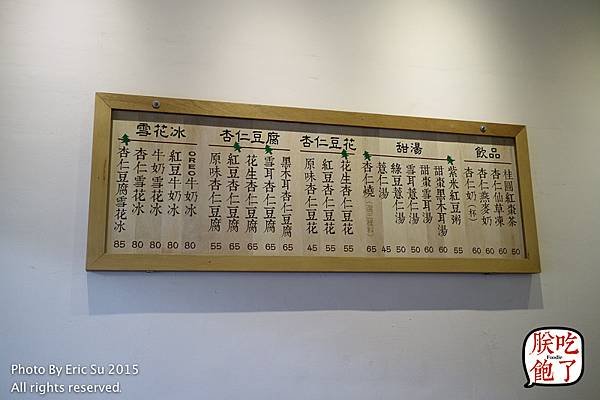 雪花冰
杏仁豆腐雪花冰 85
杏仁雪花冰 80
牛奶雪花冰 80
紅豆牛奶冰 80
OREO牛奶冰 80
杏仁豆腐
原味杏仁豆腐 55
紅豆杏仁豆腐 65
花生杏仁豆腐 65
雪耳杏仁豆腐 65
黑木耳杏仁豆腐 65
杏仁豆花
原味杏仁豆花 45
紅豆杏仁豆花 55
花生杏仁豆花 55
甜湯
杏仁燒 65
薏仁湯 45
綠豆薏仁湯 50
雪耳薏仁湯 50
甜棗雪耳湯 60
甜棗黑木耳湯 60
紫米紅豆粥 55
飲品
杏仁奶(杯) 60
杏仁燕麥奶 60
杏仁仙草凍 60
桂圓紅棗茶 60
Photo By Eric Su 2015
All rights reserved.
朕吃飽了
Foodie